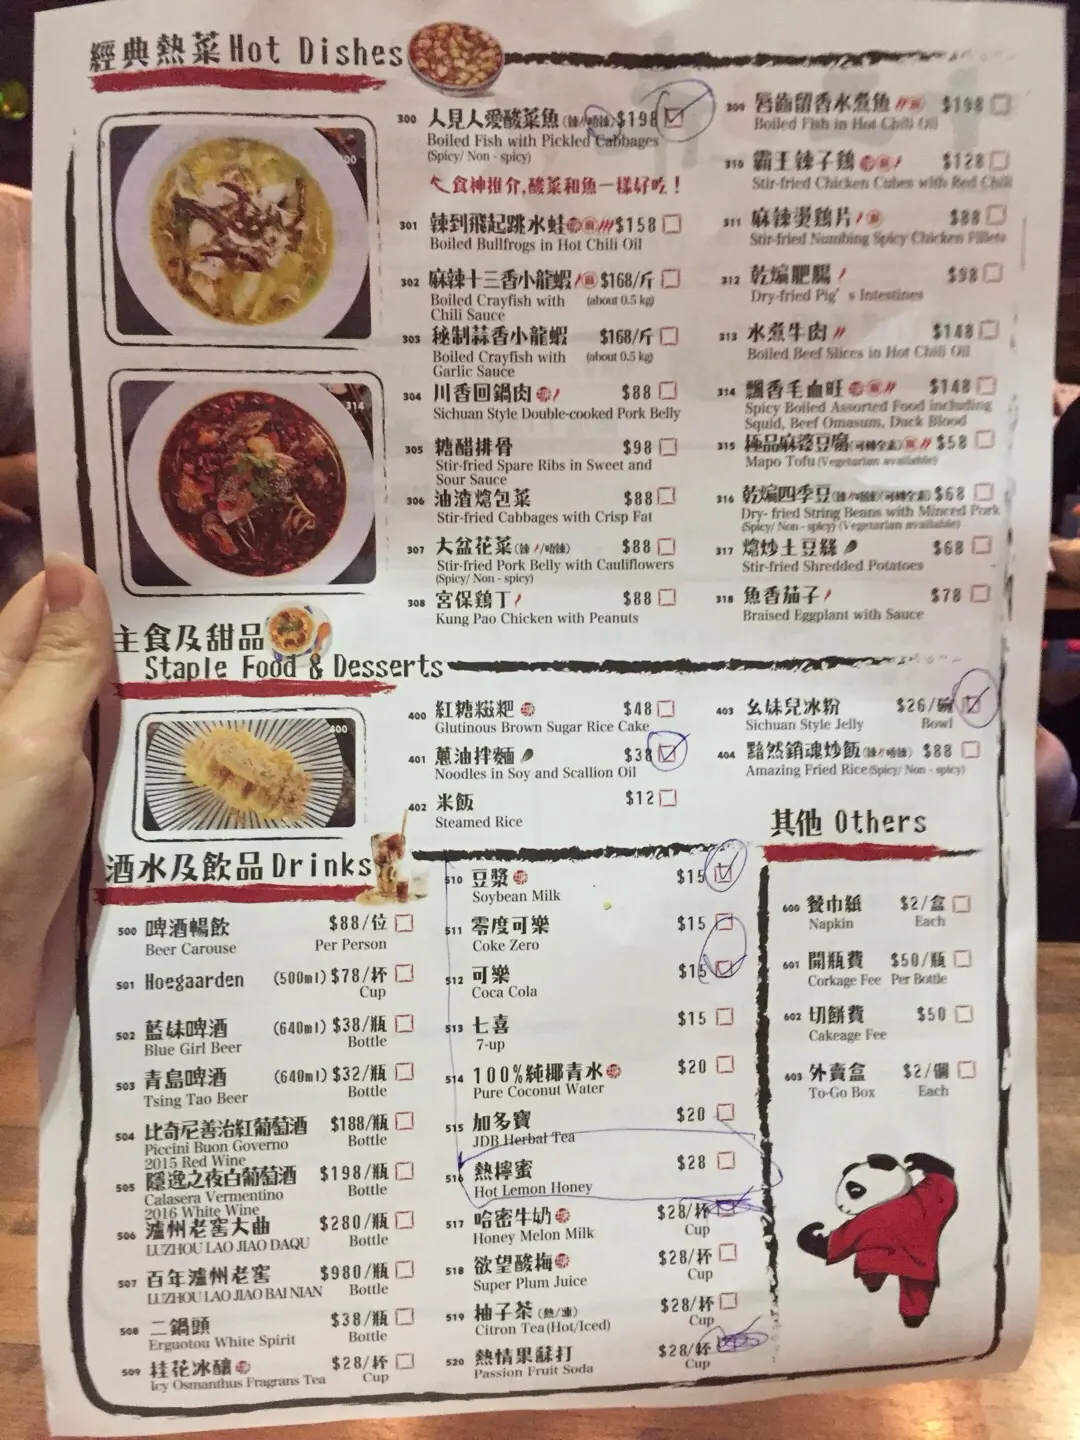 經典熱菜 Hot Dishes
300 人見人愛酸菜魚(辣/唔辣) $198
Boiled Fish with Pickled Cabbages
(Spicy/ Non - spicy)
食神推介,酸菜和魚一樣好吃!
301 辣到飛起跳水蛙 $158
Boiled Bullfrogs in Hot Chili Oil
302 麻辣十三香小龍蝦 $168/斤
Boiled Crayfish with (about 0.5 kg)
Chili Sauce
303 秘制蒜香小龍蝦 $168/斤
Boiled Crayfish with (about 0.5 kg)
Garlic Sauce
304 川香回鍋肉 $88
Sichuan Style Double-cooked Pork Belly
305 糖醋排骨 $98
Stir-fried Spare Ribs in Sweet and
Sour Sauce
306 油渣熗包菜 $88
Stir-fried Cabbages with Crisp Fat
307 大盆花菜(辣/唔辣) $88
Stir-fried Pork Belly with Cauliflowers
(Spicy/ Non - spicy)
308 宮保鷄丁 $88
Kung Pao Chicken with Peanuts
309 唇齒留香水煮魚 $198
Boiled Fish in Hot Chili Oil
310 霸王辣子鷄 $128
Stir-fried Chicken Cubes with Red Chili
311 麻辣燙鷄片 $88
Stir-fried Numbing Spicy Chicken Fillets
312 乾煸肥腸 $98
Dry-fried Pig' s Intestines
313 水煮牛肉 $148
Boiled Beef Slices in Hot Chili Oil
314 飄香毛血旺 $148
Spicy Boiled Assorted Food including
Squid, Beef Omasum, Duck Blood
315 極品麻婆豆腐(可轉全素) $58
Mapo Tofu (Vegetarian available)
316 乾煸四季豆(辣/唔辣)(可轉全素) $68
Dry- fried String Beans with Minced Pork
(Spicy/ Non - spicy) (Vegetarian available)
317 熗炒土豆絲 $68
Stir-fried Shredded Potatoes
318 魚香茄子 $78
Braised Eggplant with Sauce
300
314
主食及甜品
Staple Food & Desserts
400
400 紅糖糍粑 $48
Glutinous Brown Sugar Rice Cake
401 蔥油拌麵 $38
Noodles in Soy and Scallion Oil
402 米飯 $12
Steamed Rice
403 幺妹兒冰粉 $26/碗
Sichuan Style Jelly Bowl
404 黯然銷魂炒飯(辣/唔辣) $88
Amazing Fried Rice(Spicy/ Non - spicy)
酒水及飲品 Drinks
500 啤酒暢飲 $88/位
Beer Carouse Per Person
501 Hoegaarden (500ml) $78/杯
Cup
502 藍妹啤酒 (640ml) $38/瓶
Blue Girl Beer Bottle
503 青島啤酒 (640ml) $32/瓶
Tsing Tao Beer Bottle
504 比奇尼善治紅葡萄酒 $188/瓶
Piccini Buon Governo Bottle
2015 Red Wine
505 隱逸之夜白葡萄酒 $198/瓶
Calasera Vermentino Bottle
2016 White Wine
506 瀘州老窖大曲 $280/瓶
LUZHOU LAO JIAO DAQU Bottle
507 百年瀘州老窖 $980/瓶
LUZHOU LAO JIAO BAI NIAN Bottle
508 二鍋頭 $38/瓶
Erguotou White Spirit Bottle
509 桂花冰釀 $28/杯
Icy Osmanthus Fragrans Tea Cup
510 豆漿 $15
Soybean Milk
511 零度可樂 $15
Coke Zero
512 可樂 $15
Coca Cola
513 七喜 $15
7-up
514 100%純椰青水 $20
Pure Coconut Water
515 加多寶 $20
JDB Herbal Tea
516 熱檸蜜 $28
Hot Lemon Honey
517 哈密牛奶 $28/杯
Honey Melon Milk Cup
518 欲望酸梅 $28/杯
Super Plum Juice Cup
519 柚子茶(熱/凍) $28/杯
Citron Tea(Hot/Iced) Cup
520 熱情果蘇打 $28/杯
Passion Fruit Soda Cup
其他 Others
600 餐巾紙 $2/盒
Napkin Each
601 開瓶費 $50/瓶
Corkage Fee Per Bottle
602 切餅費 $50
Cakeage Fee
603 外賣盒 $2/個
To-Go Box Each